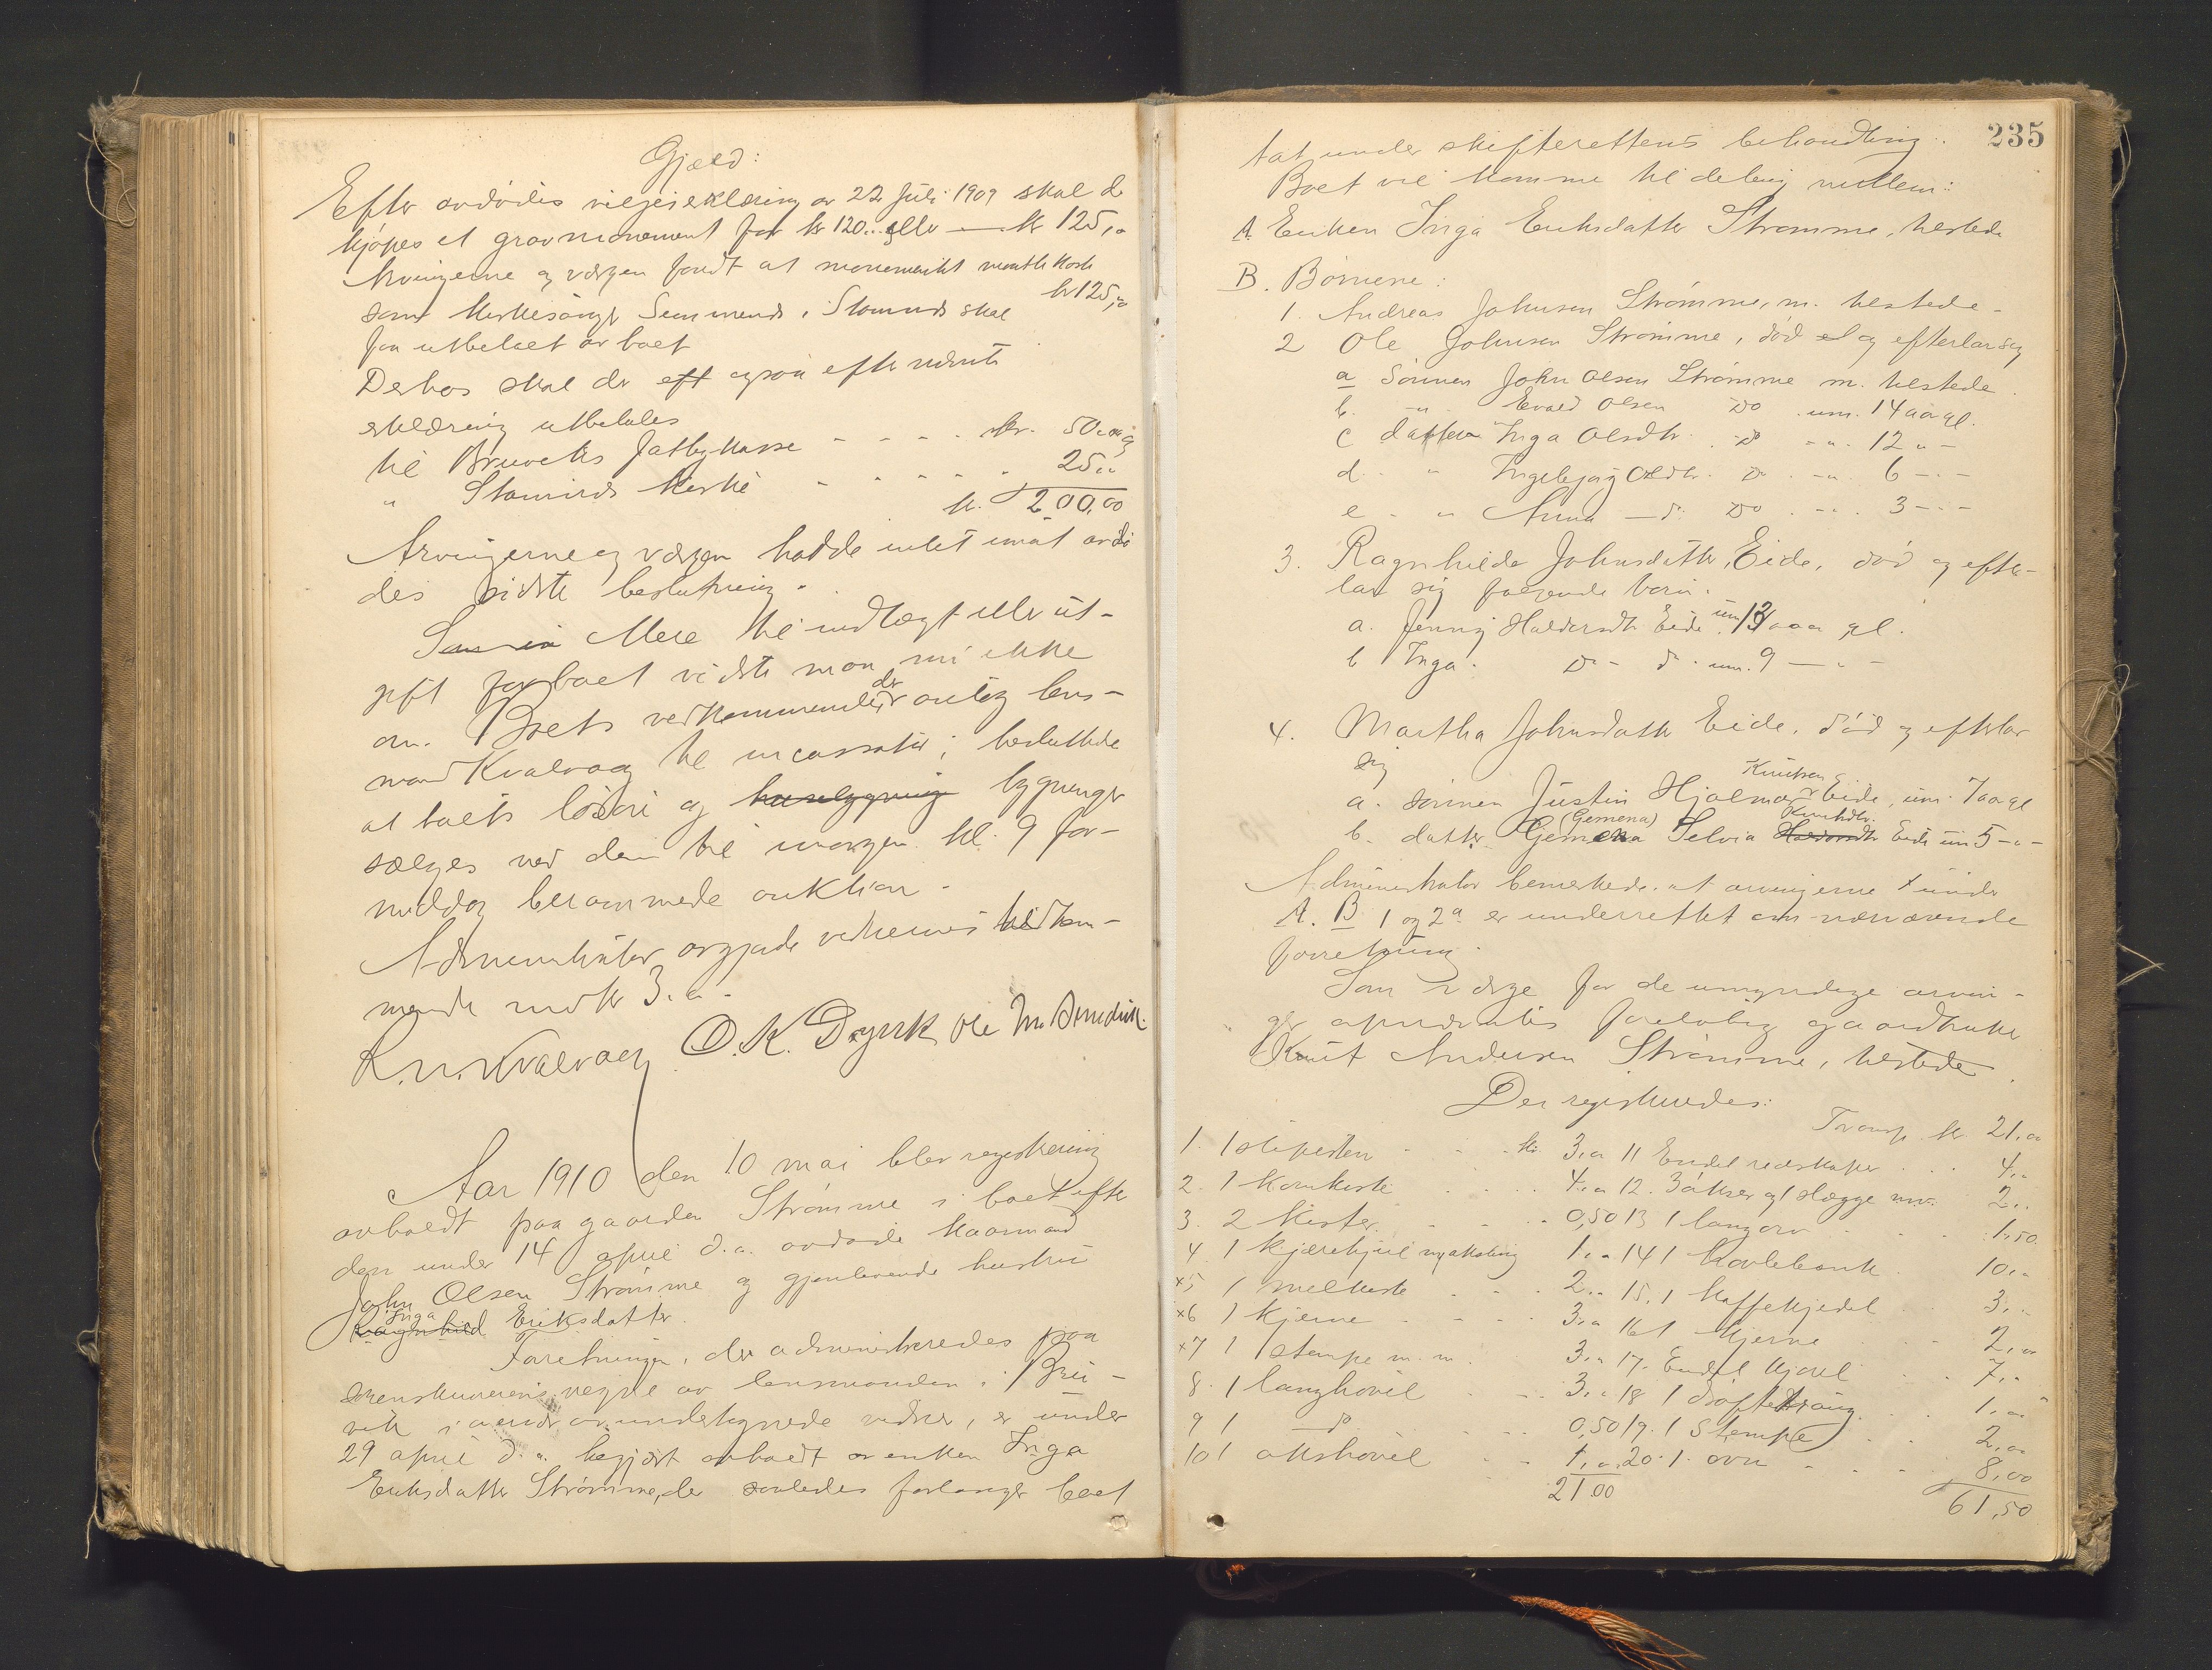 Gjæld:
Efter avdødes viljeserklæring av 22 juli 1909 skal d
kjøpes et gravmonument for kr 120.. eller — kr 125,00
Arvingerne og værgen fandt at monumentet maatte koste
kr 125,00
som kirkesanger i Stamnes skal
faa utbetalt av boet
Desuten skal der eft ogsaa efter nævnte
erklæring utbetales
til Bruviks fattigkasse - - - - kr. 50.00
" Stamnes kirke - - - - - 25..
kr. 200,00
Arvingerne og værgen hadde intet imot avdø
des sidste beslutning.
Mere til indtægt eller ut-
gift for boet vidste man nu ikke
om. Boets vedkommende der antog lens-
mand Kvalvaag til incassator; besluttede
at boets løsøre og husebygning bygninger
sælges ved den til imorgen kl. 9 for-
middag berammede auktion.
Administrator avgjorde vidnernes tilkom-
mende med kr 3.00.
K. N. Kvalvaag O. K. Dyvik Ole M.
Aar 1910 den 10 mai blev registrering
avholdt paa gaarden Strømme i boet efter
den under 14 april d.a. avdøde kaarmand
John Olsen Strømme og gjenlevende hustru
Inga
Ragnhild Eriksdatter.
Forretningen, der administreredes paa
sorenskriverens vegne av lensmanden i Bru-
vik i nærvær av undertegnede vidner, er under
29 april d.a. begjært avholdt av enken Inga
Eriksdatter Strømme, der saaledes forlanger boet
235
tat under skifterettens behandling.
Boet vil komme til deling mellem:
A. Enken Inga Eriksdatter Strømme, hersteds
B. Børnene:
1. Andreas Johnsen Strømme, m. hersteds -
2 Ole Johnsen Strømme, død el og efterlar sig
a Sønnen John Olsen Strømme m. hersteds.
b. -"- Evald Olsen Do . um. 14 aar gl.
c datter Inga Olsdtr. Do -"- 12 " -
d. " Ingebjørg Olsdtr. Do -"- 6 - " -
e - " Anna — d: Do . - " . 3 - " -
3. Ragnhilda Johnsdatter, Eide, død og efter-
lar sig følgende børn:
a. Jenny Haldorsdtr Eide um 13 aar gl.
b Inga. Do - d - um. 9 — " -
4. Martha Johnsdatter Eide, død og efterlar
sig
Knutsen
a. sønnen Justin Hjalmar Eide, um. 7 aar gl
(Gemena) Knutsdtr.
b. datter Gjemena Selvia Haldorsdtr Eide um 5 - " -
Administrator bemerkede, at arvingerne under
A. B 1 og 2a er underrettet om nærværende
forretning.
Som værge for de umyndige arvin-
ger opnævntes foreløbig gaardbruker
Knut Andersen Strømme, hersteds.
Der registreredes:
Transp. kr. 21,00
1. 1 slipesten - - - kr. 3,00 11 Endel redskaper . . . 4,00
2. 1 kornkiste . . . . 4.00 12. 3 økser og 1 slægge m.v. 2..
3. 2 kister. - - - .. 0,50 13 1 langorv . . . . 1,50
4 1 kjærehjul m. aksling 1.00 14 1 kavlebænk 10,00
×5 1 melkiste . . . . 2.. 15. 1 kaffekjedel . . 3,.
×6 1 kjerne . . - - . 3.00 16 1 kjerne . . . 2,00
×7 1 stampe m. m. 3.00 17. Endel kjørel . . 7,.
8. 1 langhøvil - - - 3.. 18 1 . . 1,00
9 1 — do - - - 0,50 19. 1 stampe . . 2,00
10 1 okshøvil - - 1,00 20. 1 ovn - - - - 8,00
21.00 61,50